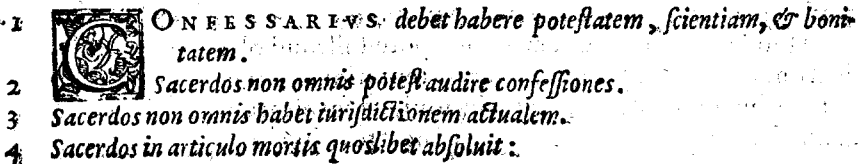 1 CONFESSARIVS debet habere poteſtatem, ſcientiam, & boni-
tatem.
2 Sacerdos non omnis poteſt audire confeſſiones.
3 Sacerdos non omnis habet iuriſdictionem actualem.
4 Sacerdos in articulo mortis quoslibet abſoluit: